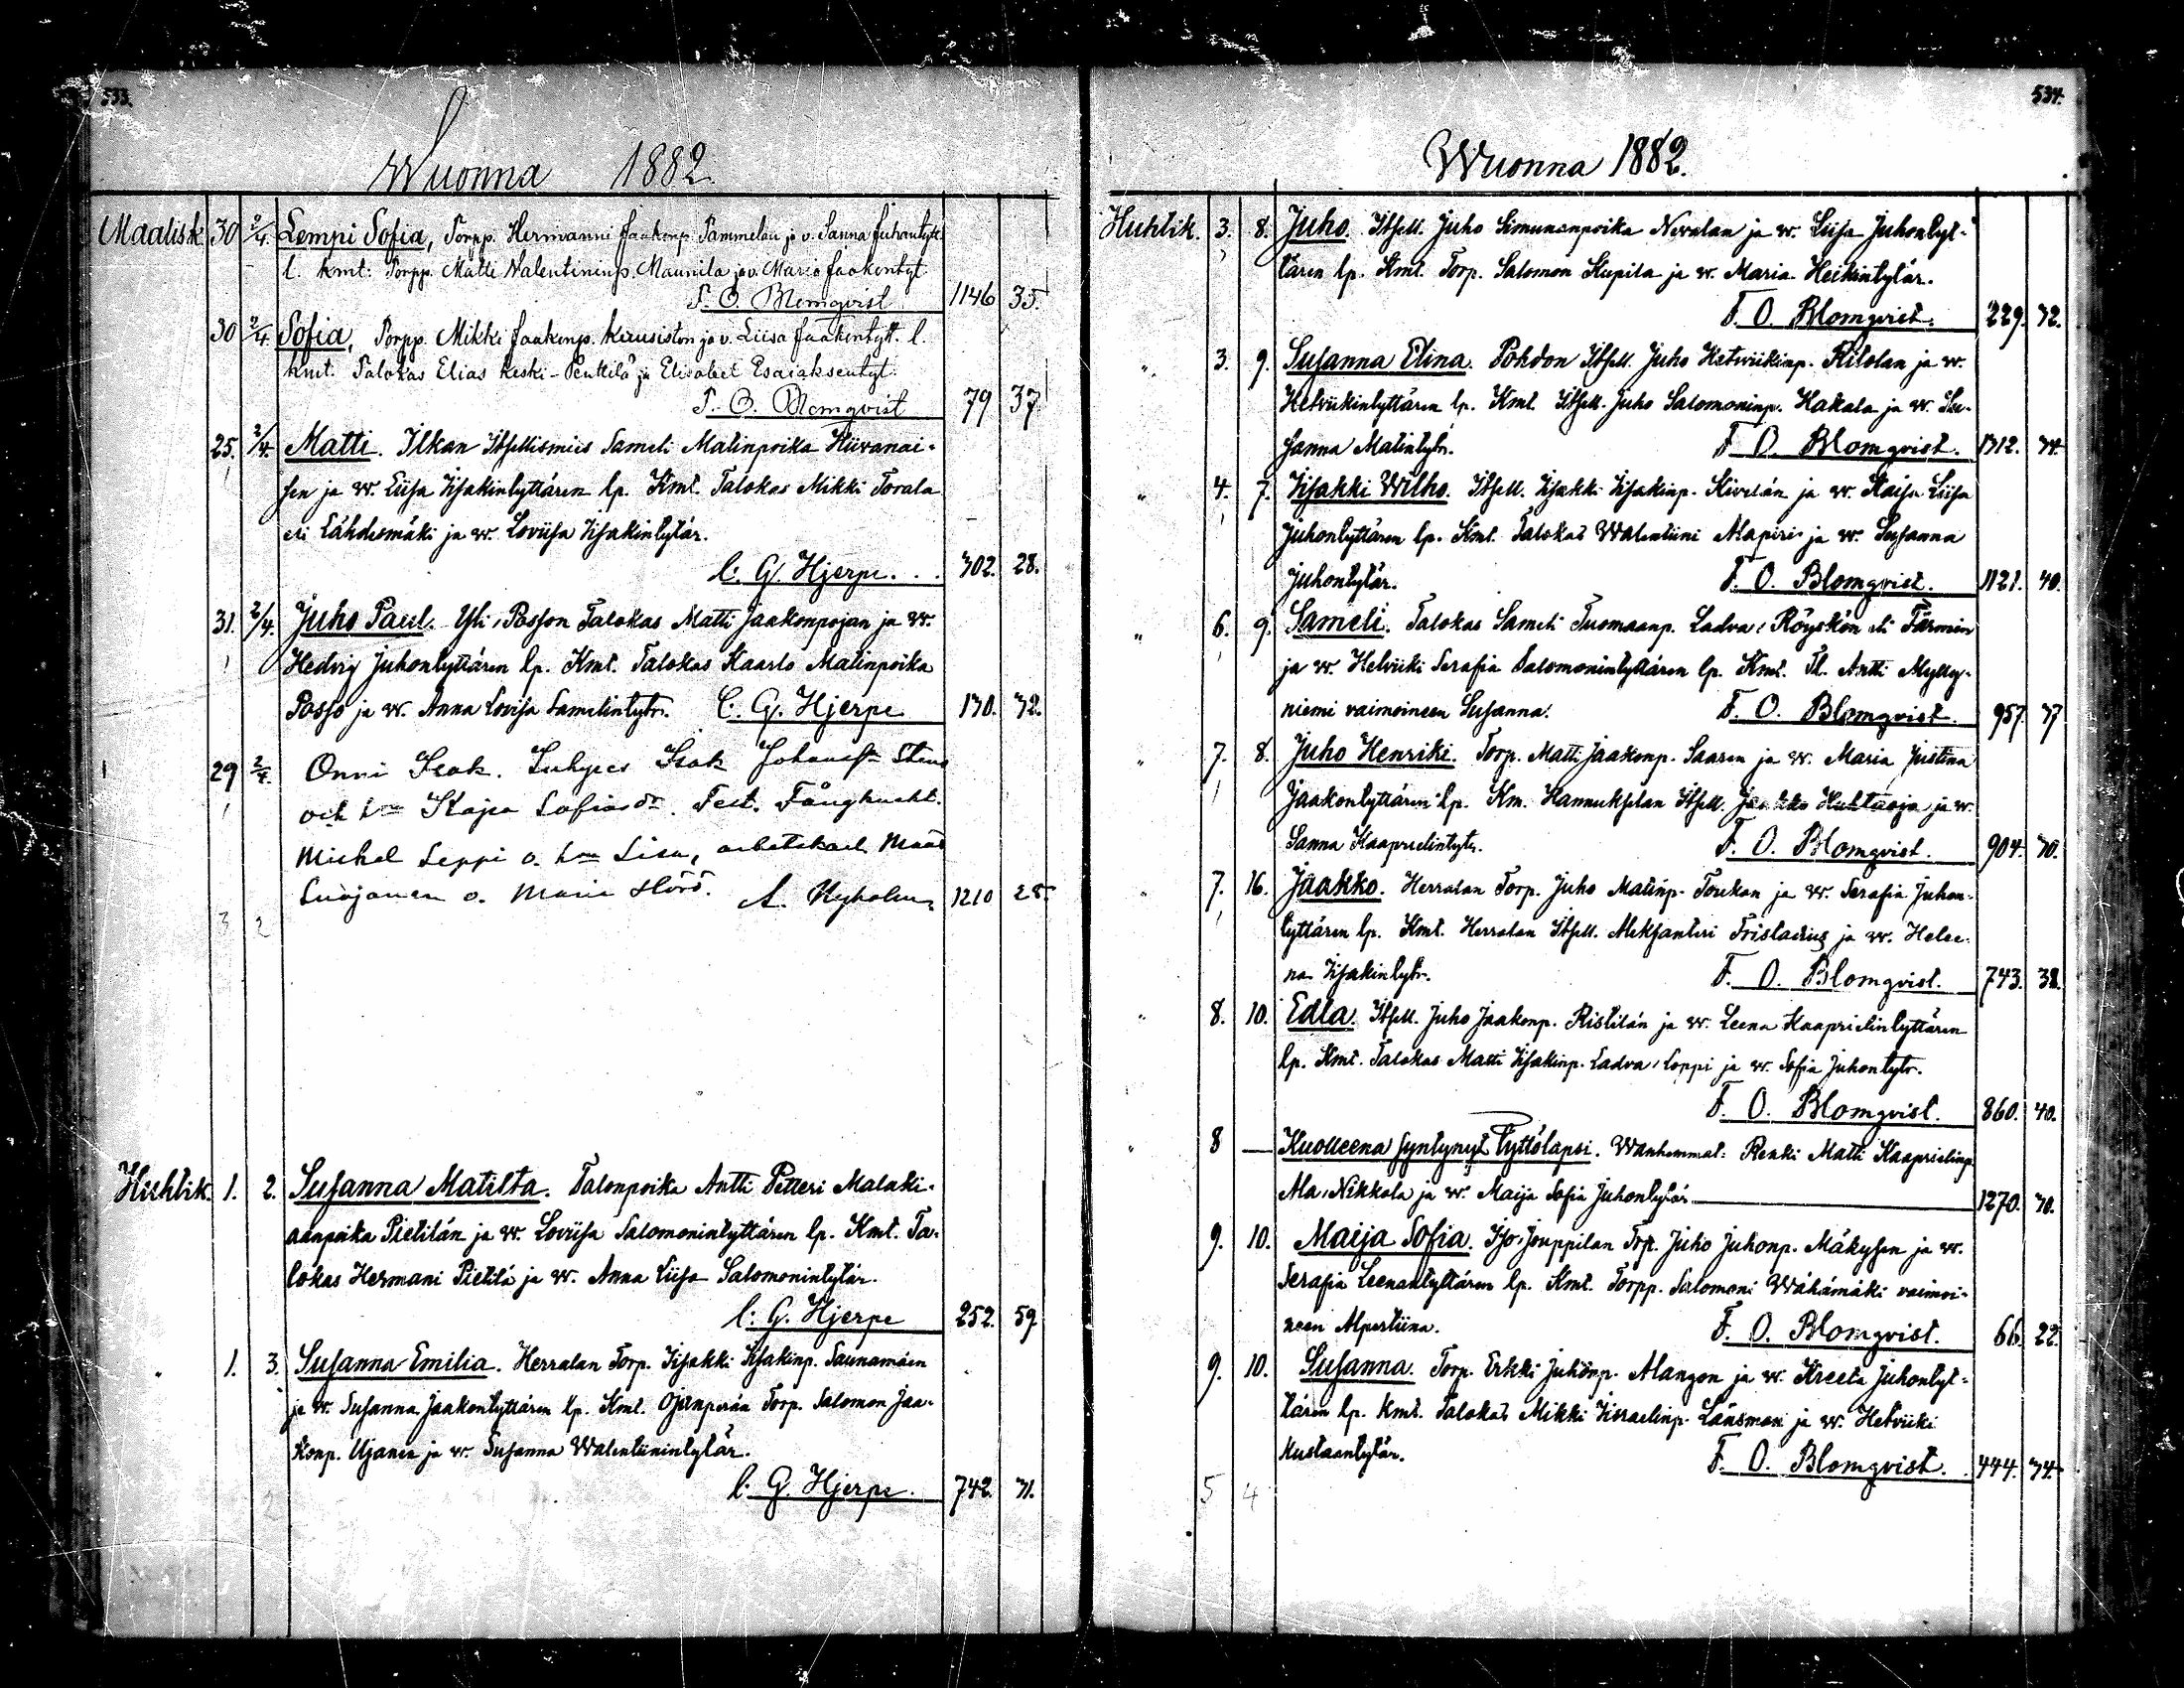 533.
Wuonna 1882.
Maalisk. 30 2/4. Lempi Sofia, Torpp. Hermanni Jaakonp. Tammelan ja v. Sanna Juhontytt.
l. kmt: Torpp. Matti Valentininp. Maunila ja v. Maria Jaakontyt.
F. O. Blomqvist 1146 35.
30 2/4. Sofia, Torpp. Mikki Jaakonp. Kuusiston ja v. Liisa Jaakontytt. l.
kmt. Talokas Elias Keski-Penttilä ja Elisabet Esaiaksentyt.
F. O. Blomqvist 79 37.
25. 2/4. Matti. Ilkan Itsellismies Sameli Matinpoika Hiivanai-
sen ja w. Liisa Iisakintyttären lp. Kmt. Talokas Mikki Torala
eli Lähdesmäki ja w. Loviisa Iisakintytär.
C. G. Hjerpe. 702. 28.
31. 2/4. Juho Paul. Yli-Posson Talokas Matti Jaakonpojan ja w.
Hedvig Juhontyttären lp. Kmt. Talokas Kaarlo Matinpoika
Posso ja w. Anna Lovisa Samelintytr. C. G. Hjerpe 170. 72.
29 2/4. Onni Isak. Isak Johansson
och h:m Kajsa Sofiasdr. Test. Fångknekt.
Michel Leppi o. h:m Lisa, arbetskarl
o. Maria A. Nyholm 1210 28.
3 2
Huhtik. 1. 2. Susanna Matilta. Talonpoika Antti Petteri Malaki-
aanpoika Pietilän ja w. Loviisa Salomonintyttären lp. Kmt. Ta-
lokas Hermani Pietilä ja w. Anna Liisa Salomonintytär.
C. G. Hjerpe 252. 59
" 1. 3. Susanna Emilia. Herralan Torp. Iisakki Iisakinp. Saunamäen
ja w. Susanna Jaakontyttären lp. Kmt. Ojanperän Torp. Salomon Jaa-
konp. Ujanen ja w. Susanna Walentiinintytär.
C. G. Hjerpe. 742. 71.
534.
Wuonna 1882.
Huhtik. 3. 8. Juho. Itsell. Juho Simunanpoika Nevalan ja w. Liisa Juhontyt-
tären lp. Kmt. Torp. Salomon Kupila ja w. Maria Heikintytär.
F. O. Blomqvist. 229. 72.
" 3. 9. Susanna Elina. Pohdon Itsell. Juho Hetviikinp. Kitolan ja w.
Hetviikintyttären lp. Kmt. Itsell. Juho Salomoninp. Hakala ja w. Su-
sanna Matintytr. F. O. Blomqvist. 1312. 74.
" 4. 7. Iisakki Wilho. Itsell. Iisakki Iisakinp. Kivelän ja w. Kaisa Liisa
Juhontyttären lp. Kmt. Talokas Walentiini Alapiri ja w. Susanna
Juhontytär. F. O. Blomqvist. 1121. 40.
" 6. 9. Sameli. Talokas Sameli Tuomaanp. Ladva-Röyskön eli Färmin
ja w. Helviiki Serafia Salomonintyttären lp. Kmt. Tl. Antti Mylly-
niemi vaimoineen Susanna. F. O. Blomqvist. 957. 77
" 7. 8. Juho Henriki. Torp. Matti Jaakonp. Saaren ja w. Maria Justina
Jaakontyttären lp. Km. Hannukselan Itsell. Jaakko Huhtaoja ja w.
Sanna Kaaprielintytr. F. O. Blomqvist. 904. 70.
" 7. 16. Jaakko. Herralan Torp. Juho Matinp. Toukan ja w. Serafia Juhon-
tyttären lp. Kmt. Herralan Itsell. Aleksanteri Fristadius ja w. Helee-
na Iisakintytr. F. O. Blomqvist. 743. 38.
" 8. 10. Edla. Itsell. Juho Jaakonp. Ristilän ja w. Leena Kaaprielintyttären
lp. Kmt. Talokas Matti Iisakinp. Ladva-Loppi ja w. Sofia Juhontytr.
F. O. Blomqvist. 860. 40.
" 8 — Kuolleena syntynyt tyttölapsi. Wanhemmat: Renki Matti Kaaprielinp.
Ala-Nikkola ja w. Maija Sofia Juhontytär 1270. 70.
9. 10. Maija Sofia. Iso-Jouppilan Torp. Juho Juhonp. Mäkysen ja w.
Serafia Leenantyttären lp. Kmt. Torpp. Salomoni Wähämäki vaimoi-
neen Alpertiina. F. O. Blomqvist. 66. 22.
9. 10. Susanna. Torp. Erkki Juhonp. Alangon ja w. Kreeta Juhontyt-
tären lp. Kmt. Talokas Mikki Iisraelinp. Länsman ja w. Hetviiki
Kustaantytär. F. O. Blomqvist. 444. 74.
5 4